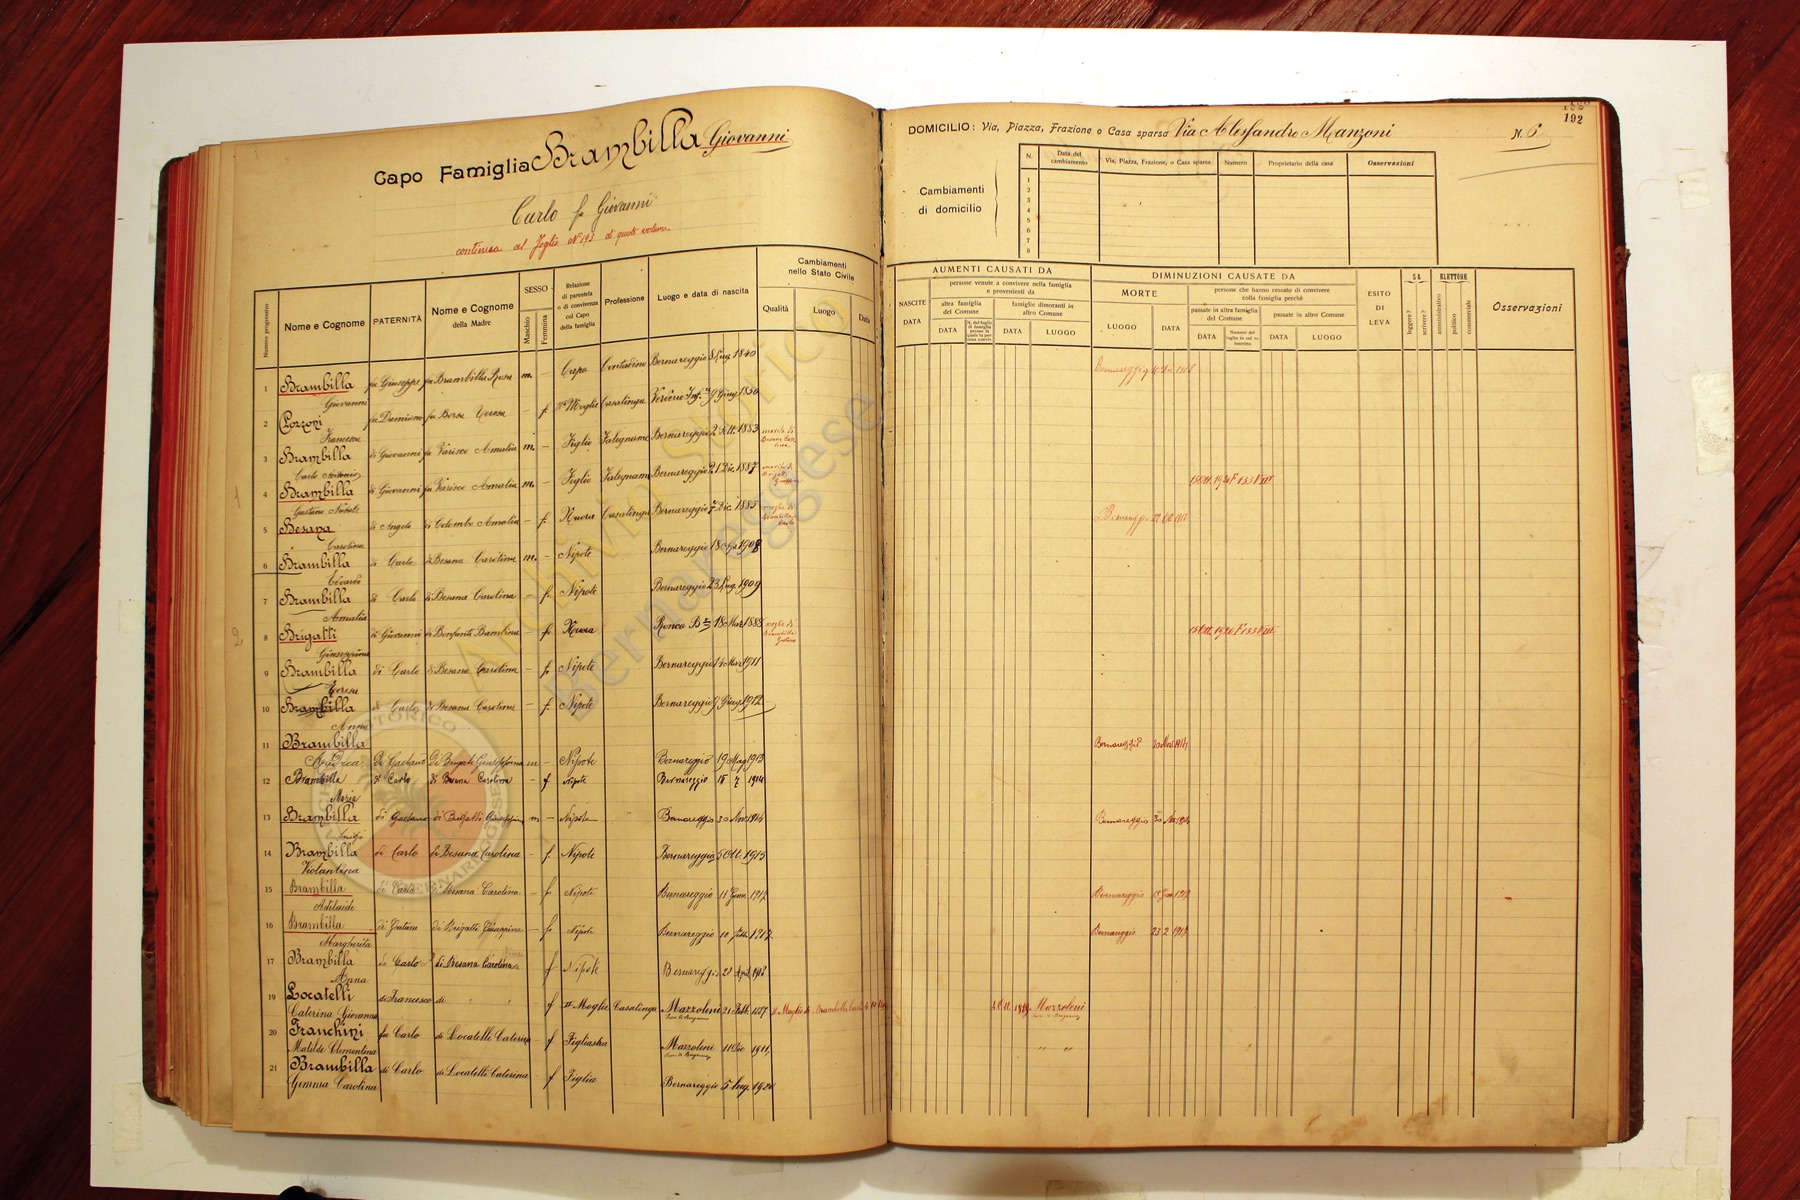 192
Capo Famiglia Brambilla Giovanni
Carlo fu Giovanni
continua al Foglio N° 193 di questo volume
DOMICILIO: Via, Piazza, Frazione o Casa sparsa Via Alessandro Manzoni N. 6
Cambiamenti di domicilio
N. Data del cambiamento Via, Piazza, Frazione, o Casa sparsa Numero Proprietario della casa Osservazioni
1
2
3
4
5
6
7
8
Numero progressivo Nome e Cognome PATERNITÀ Nome e Cognome della Madre SESSO Maschio Femmina Relazione di parentela o di convivenza col Capo della famiglia Professione Luogo e data di nascita Cambiamenti nello Stato Civile Qualità Luogo Data
AUMENTI CAUSATI DA
NASCITE DATA
persone venute a convivere nella famiglia e provenienti da
altra famiglia del Comune DATA
famiglie dimoranti in altro Comune DATA LUOGO
DIMINUZIONI CAUSATE DA
MORTE LUOGO DATA
persone che hanno cessato di convivere colla famiglia perchè
passate in altra famiglia del Comune DATA
passate in altro Comune DATA LUOGO
ESITO DI LEVA
SA leggere? scrivere?
ELETTORE amministrativo politico commerciale
Osservazioni
1 Brambilla Giovanni fu Giuseppe fu Brambilla Rosa m. – Capo Contadino Bernareggio 8 Lug. 1840 Bernareggio
2 Pozzoni Francesca fu Damiano fu Bersa Teresa – f. IIª Moglie Casalinga 9 Giug. 1850
3 Brambilla Carlo Antonio di Giovanni fu Varisco Amalia m. – Figlio Falegname Bernareggio 2 Sett. 1883 marito di Besana Carolina
4 Brambilla Gaetano Natale di Giovanni fu Varisco Amalia m. – Figlio Falegname Bernareggio 21 Dic. 1887 marito di Brigatti Giuseppina 15 Ott. 1920 F 133 V III
5 Besana Carolina di Angelo di Colombo Amalia – f. Nuora Casalinga Bernareggio 7 Dic. 1885 moglie di Brambilla Carlo Bernareggio
6 Brambilla Edoardo di Carlo di Besana Carolina m. – Nipote Bernareggio 18
7 Brambilla Amalia di Carlo di Besana Carolina – f. Nipote Bernareggio 23 Lug. 1909
8 Brigatti Giuseppina di Giovanni di Bonfanti Bambina – f. Nuora Ronco 18 Mar. 1888 moglie di Brambilla Gaetano 15 Ott. 1920 F 133 V III
9 Brambilla Teresa di Carlo di Besana Carolina – f. Nipote Bernareggio 14 Mar. 1911
10 Brambilla Anna di Carlo di Besana Carolina – f. Nipote Bernareggio 9 Giug. 1912
11 Brambilla Andrea di Gaetano di Brigatti Giuseppina m – Nipote Bernareggio 19 Mag 1913 Bernareggio
12 Brambilla Maria di Carlo di Besana Carolina – f Nipote Bernareggio 18 7 1914
13 Brambilla di Gaetano di Brigatti Giuseppina m – Nipote Bernareggio 30 Nov. 1914 Bernareggio 30 Nov. 1914
14 Brambilla Violantina di Carlo di Besana Carolina – f. Nipote Bernareggio 5 Ott. 1915
15 Brambilla Adelaide di Carlo di Besana Carolina – f. Nipote Bernareggio 11 Genn. 1917 Bernareggio 1917
16 Brambilla Margherita di Gaetano di Brigatti Giuseppina – f. Nipote Bernareggio 10 Febb. 1917 Bernareggio 23 2 1917
17 Brambilla Anna di Carlo di Besana Carolina f Nipote Bernareggio 21 Apr. 1918
19 Locatelli Caterina Giovanna di Francesco di f IIª Moglie Casalinga Mazzoleni 21 Febb. 1887 2 Ott. 1919 Mazzoleni
20 Franchini Matilde Clementina fu Carlo di Locatelli Caterina – f Figliastra Mazzoleni 11 1911 " "
21 Brambilla Gemma Carolina di Carlo di Locatelli Caterina f Figlia Bernareggio 5 Lug. 1920
1
2
Archivio Storico Bernareggese
ARCHIVIO STORICO BERNAREGGESE